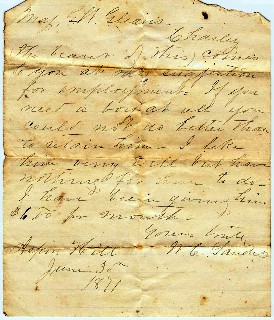 Maj. W. Evans.
Charly
the bearer of this, comes
to you at my suggestion
for employment. If you
need a boy at all you
could not do better than
to retain him. I like
him very well but have
nothing for him to do.
I have been giving him
$6.00 per month.
Yours truly
W. C. Sanders
Hill
June 30th
1871